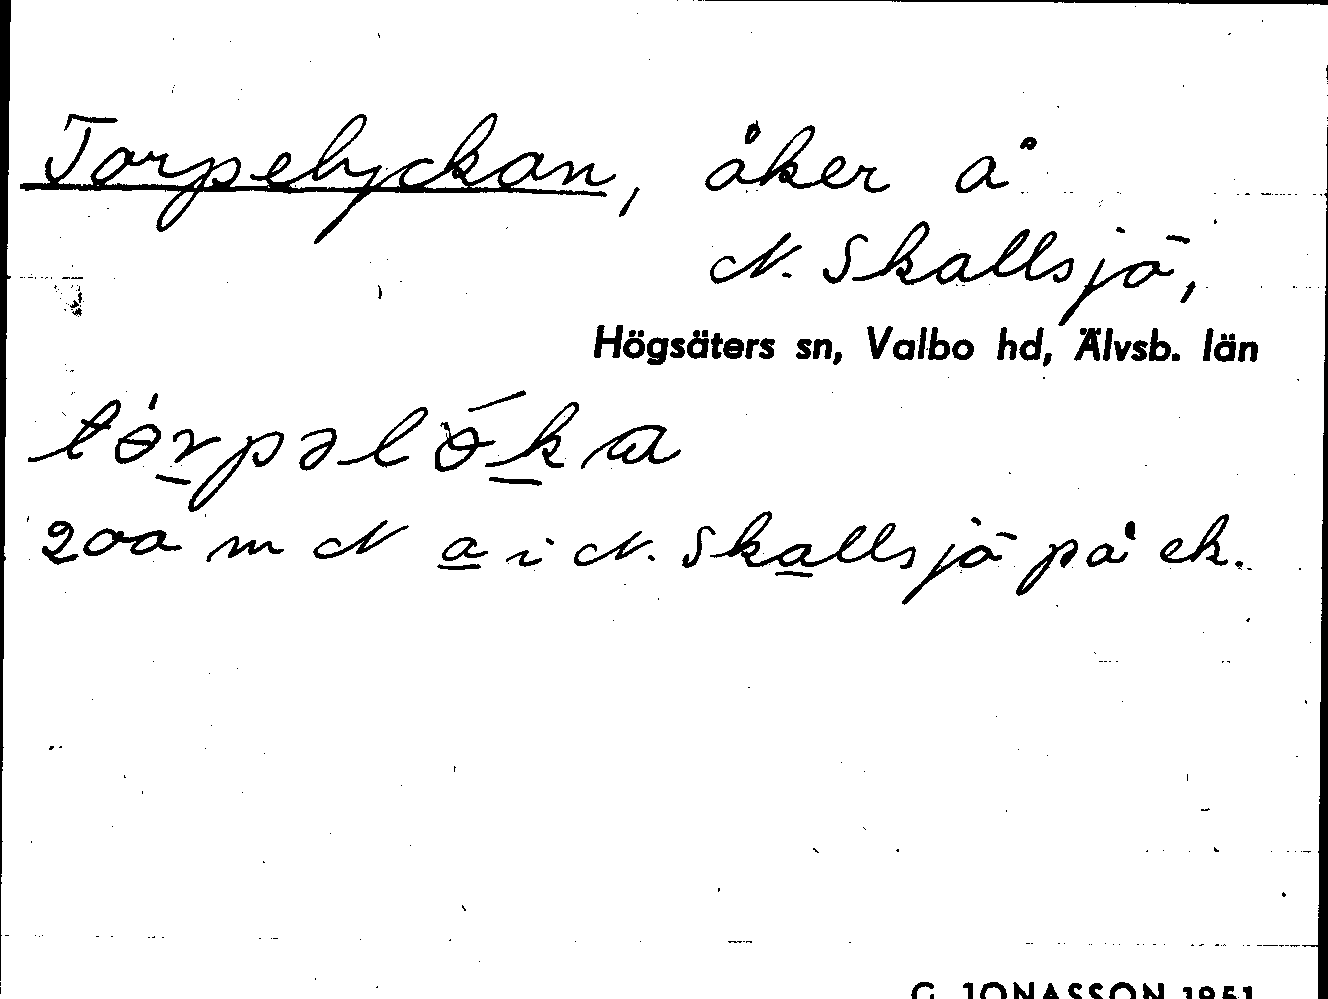 Torpelyckan, åker å
N. Skallsjö,
Högsäters sn, Valbo hd, Älvsb. län
tɵ́rpəlɵ́ka
200 m N a i N. Skallsjö på ek.
G. JONASSON 1951